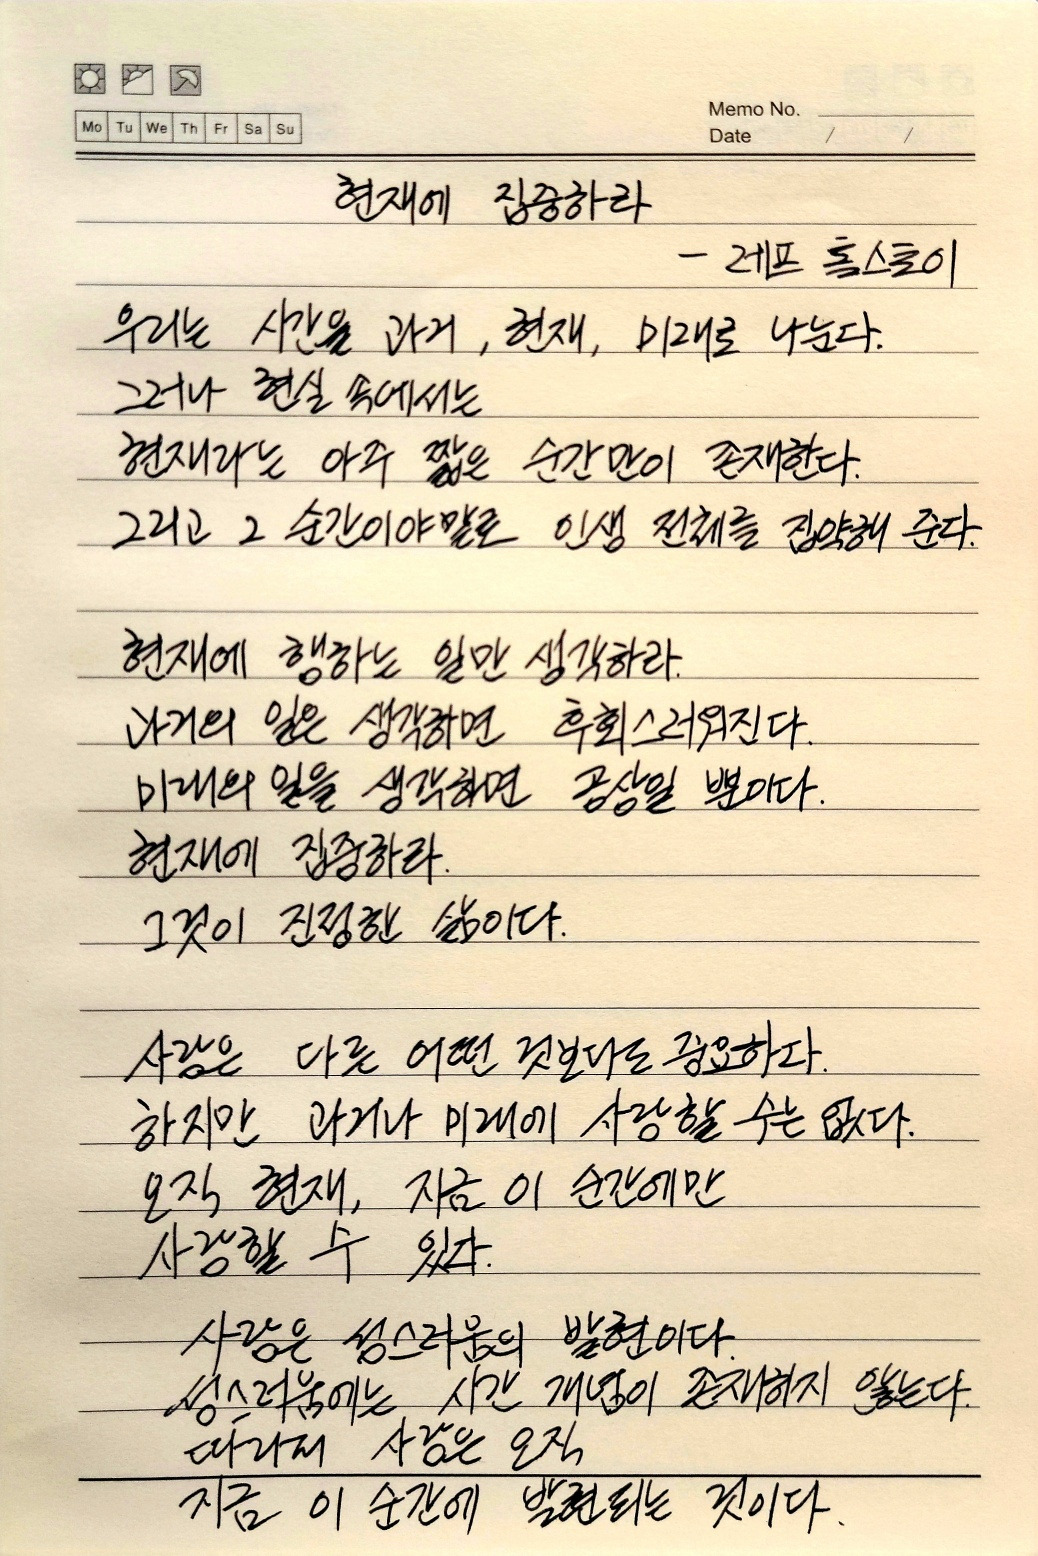 Memo No.
Mo Tu We Th Fr Sa Su
Date / /
현재에 집중하라
- 레프 톨스토이
우리는 시간을 과거, 현재, 미래로 나눈다.
그러나 현실 속에서는
현재라는 아주 짧은 순간만이 존재한다.
그리고 그 순간이야말로 인생 전체를 집약해 준다.
현재에 행하는 일만 생각하라.
과거의 일은 생각하면 후회스러워진다.
미래의 일을 생각하면 공상일 뿐이다.
현재에 집중하라.
그것이 진정한 삶이다.
사랑은 다른 어떤 것보다도 중요하다.
하지만 과거나 미래에 사랑할 수는 없다.
오직 현재, 지금 이 순간에만
사랑할 수 있다.
사랑은 성스러움의 발현이다.
성스러움에는 시간 개념이 존재하지 않는다.
따라서 사랑은 오직
지금 이 순간에 발현되는 것이다.